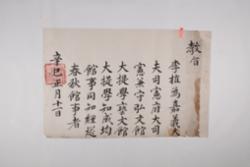 教旨
李㰒爲嘉義大
夫司憲府大司
憲兼守弘文館
大提學藝文館
大提學知成均
館事同知經筵
春秋館事者
辛巳正月十一日